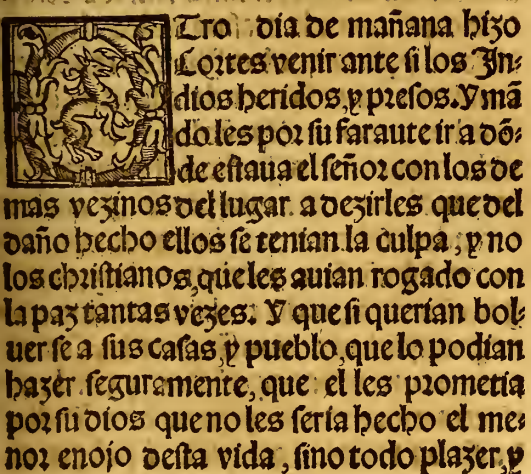 OTro dia de mañana hizo
Cortes venir ante si los In-
dios heridos, y presos. Y mã
do les por su faraute ir a dõ-
de estaua el señor con los de
mas vezinos del lugar. a dezirles que del
daño hecho ellos se tenian la culpa, y no
los christianos, que les auian rogado con
la paz tantas vezes. Y que si querian bol-
uer se a sus casas, y pueblo, que lo podian
hazer seguramente, que el les prometia
por su dios que no les seria hecho el me-
nor enojo desta vida, sino todo plazer, y